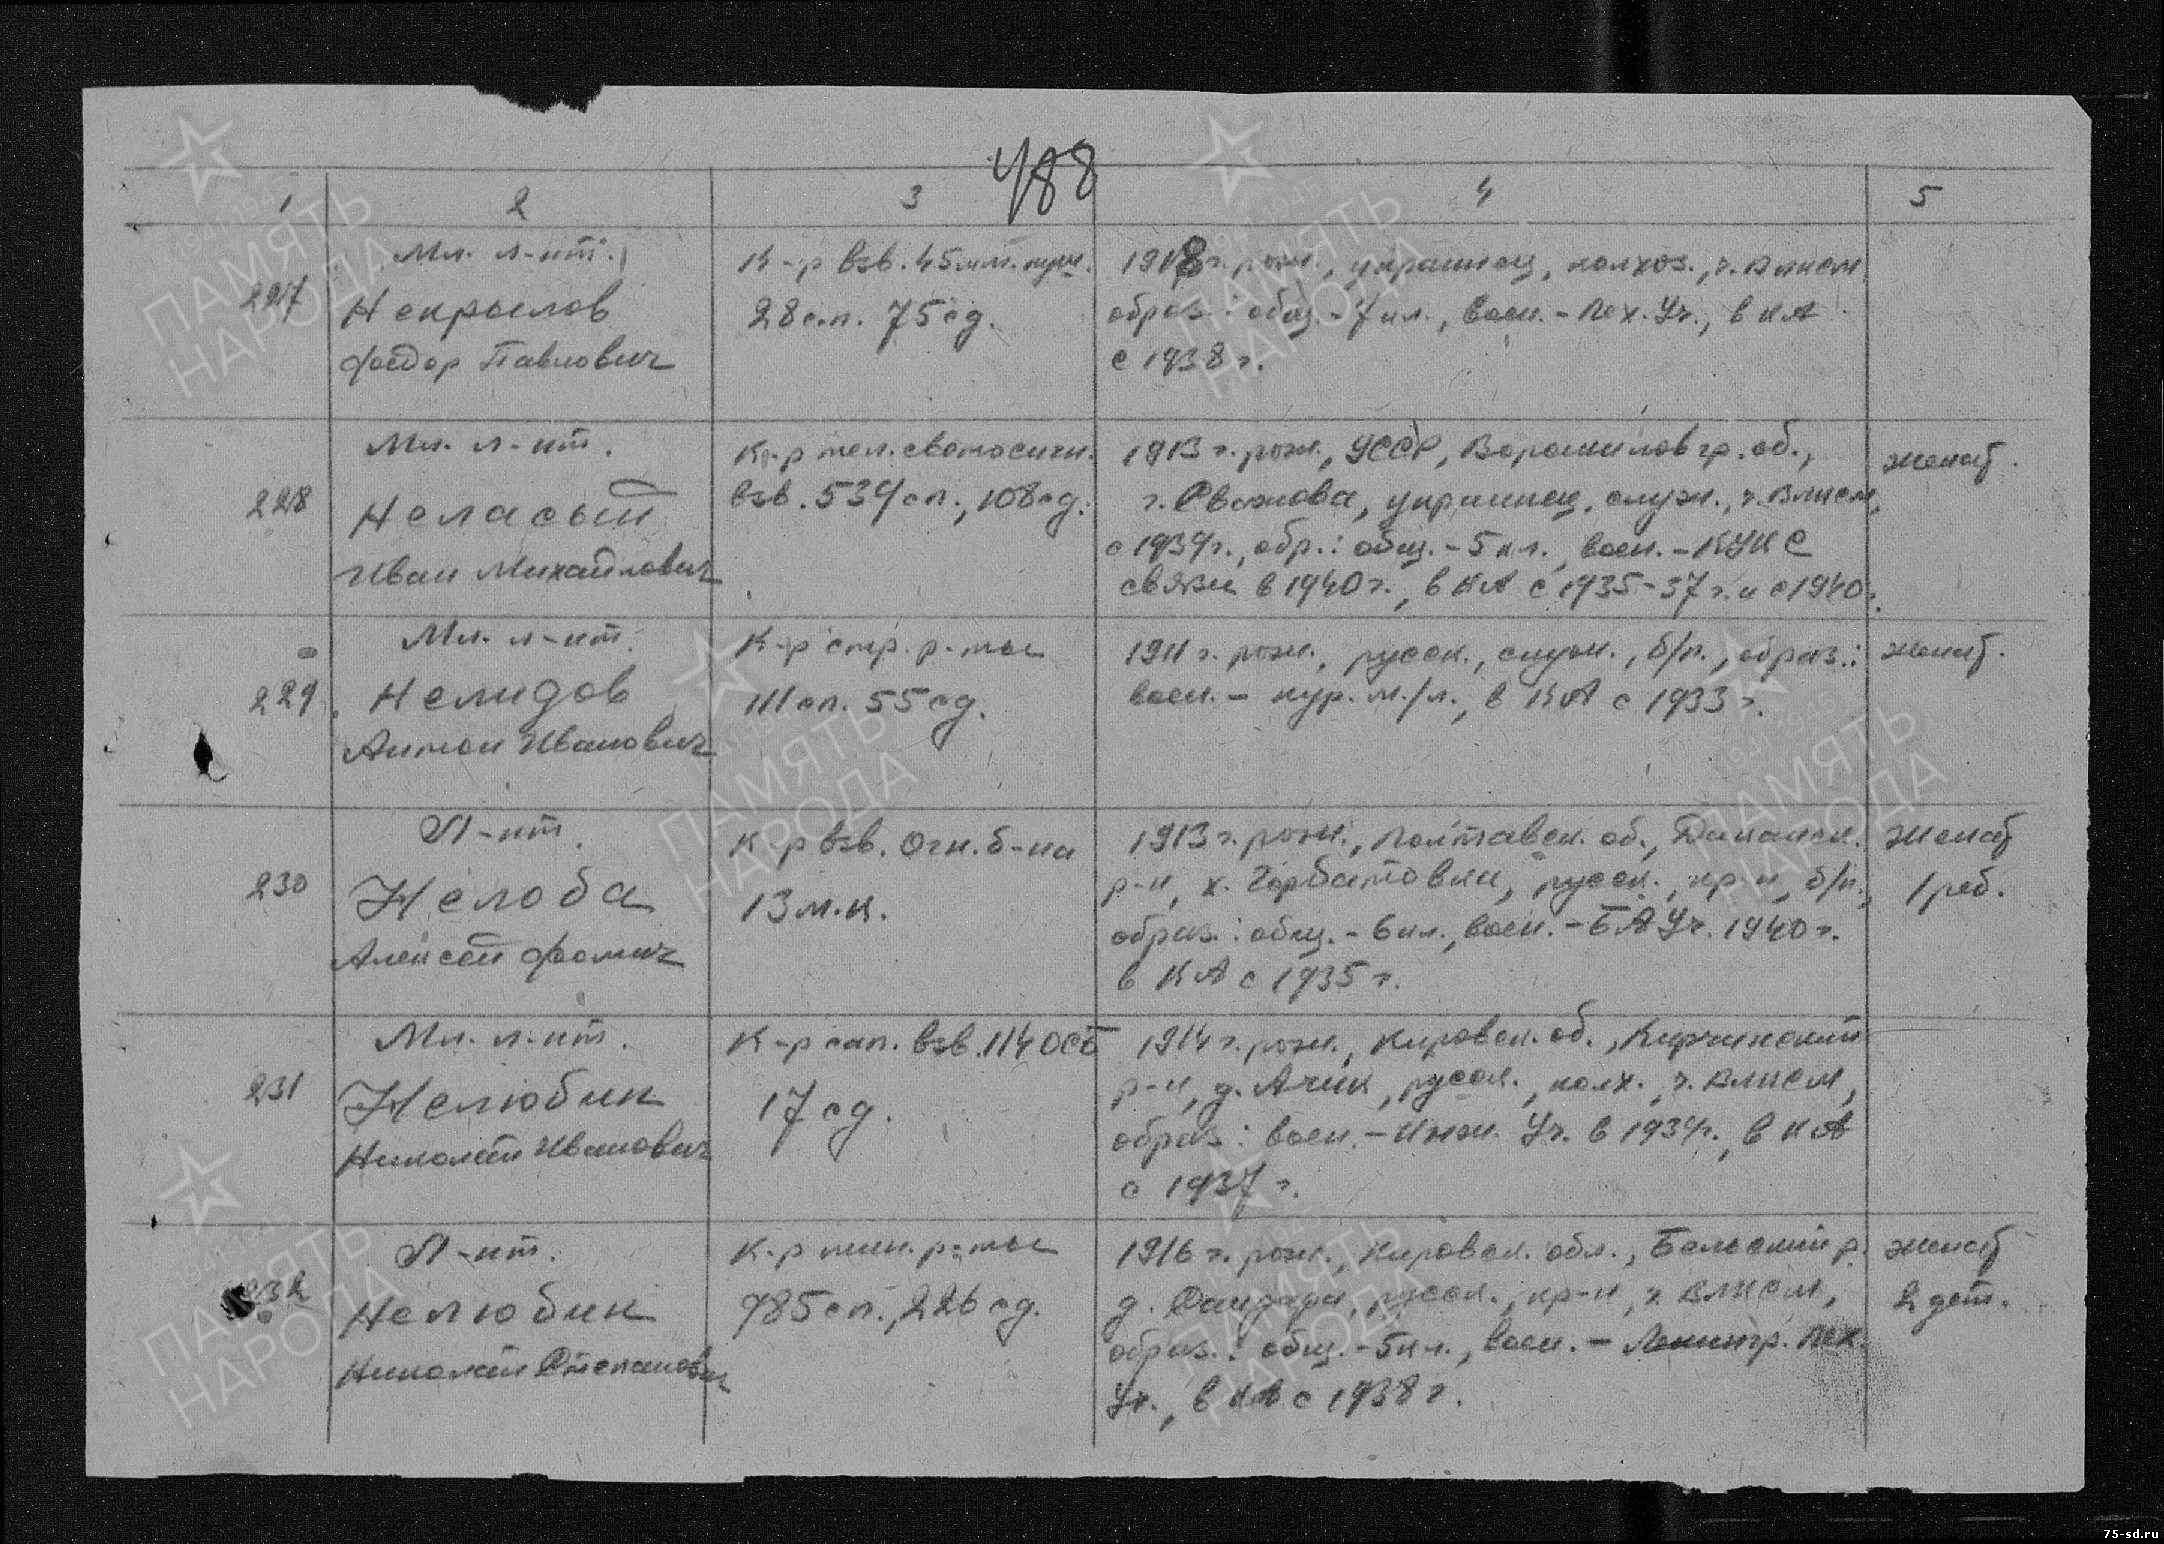 488
1 2 3 4 5
227
Мл. л-нт.
Некрылов
Фёдор Павлович
К-р взв. 45 мм. пуш.
28 сп. 75 сд.
1918 г. рож., украинец, колхоз., ч. влксм
образ.: общ. - 7 кл., воен. - Пех. Уч., в КА
с 1938 г.
228
Мл. л-нт.
Неласый
Иван Михайлович
К-р тел.
взв. 539 сп., 108 сд.
1913 г. рож., УССР, Ворошиловгр. об.,
г. украинец, служ., ч. влксм,
с 1939 г., обр.: общ. - 5 кл., воен. - КУКС
связи в 1940 г., в КА с 1935-37 г. и с 1940.
женат.
229
Мл. л-нт.
Нелидов
Антон Иванович
К-р стр. р-ты
111 сп. 55 сд.
1911 г. рож., русск., служ., б/п., образ.:
воен. - кур. м./л., в КА с 1933 г.
женат.
230
Л-нт.
Нелоба
Алексей Фомич
К-р взв. огн. б-на
13 м.к.
1913 г. рож., Полтавск. об., Диканск.
р-н, х. Горбатовки, русск., кр-н, б/п.,
образ.: общ. - 6 кл., воен. - БАУч. 1940 г.
в КА с 1935 г.
женат
1 реб.
231
Мл. л-нт.
Нелюбин
Николай Иванович
К-р сап. взв. 114 осб
17 сд.
1914 г. рож., Кировск. об.,
р-н, д. Ачик, русск., колх., ч. влксм,
образ.: воен. - Инж. Уч. в 1939 г., в КА
с 1937 г.
232
Л-нт.
Нелюбин
Николай Степанович
К-р мин. р-ты
785 сп., 226 сд.
1916 г. рож., Кировск. обл., Бельский р.
д. русск., кр-н, ч. влксм,
образ.: общ. - 5 кл., воен. - Ленингр. пех.
Уч., в КА с 1938 г.
женат
2 дет.
ПАМЯТЬ
НАРОДА
ПАМЯТЬ
НАРОДА
ПАМЯТЬ
НАРОДА
ПАМЯТЬ
НАРОДА
ПАМЯТЬ
НАРОДА
ПАМЯТЬ
НАРОДА
75-sd.ru